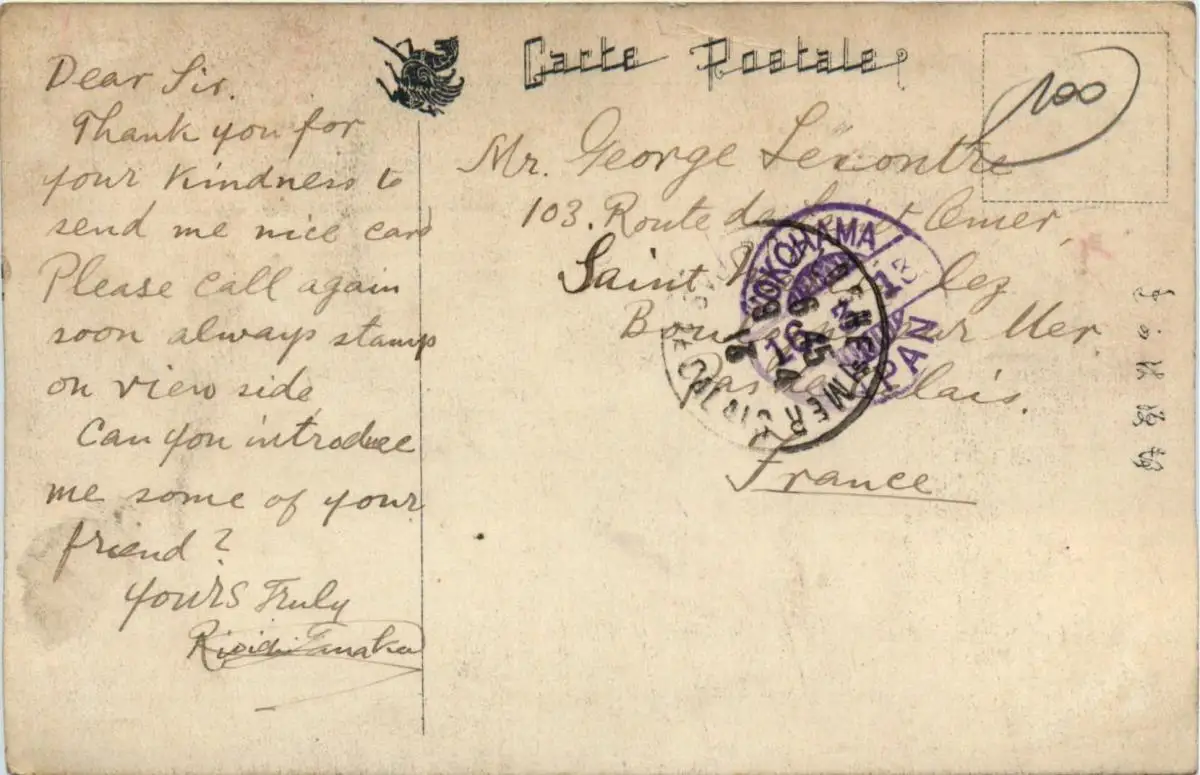 Dear Sir.
Thank you for
your Kindness to
send me nice card
Please call again
soon always stamp
on view side
Can you introduce
me some of your
friend?
Yours Truly
Tanaka
Carte Postale
100
Mr. George
103. Route de Omer,
Saint
sur Mer
Pas de Calais.
France
YOKOHAMA
JAPAN
16
CALAIS